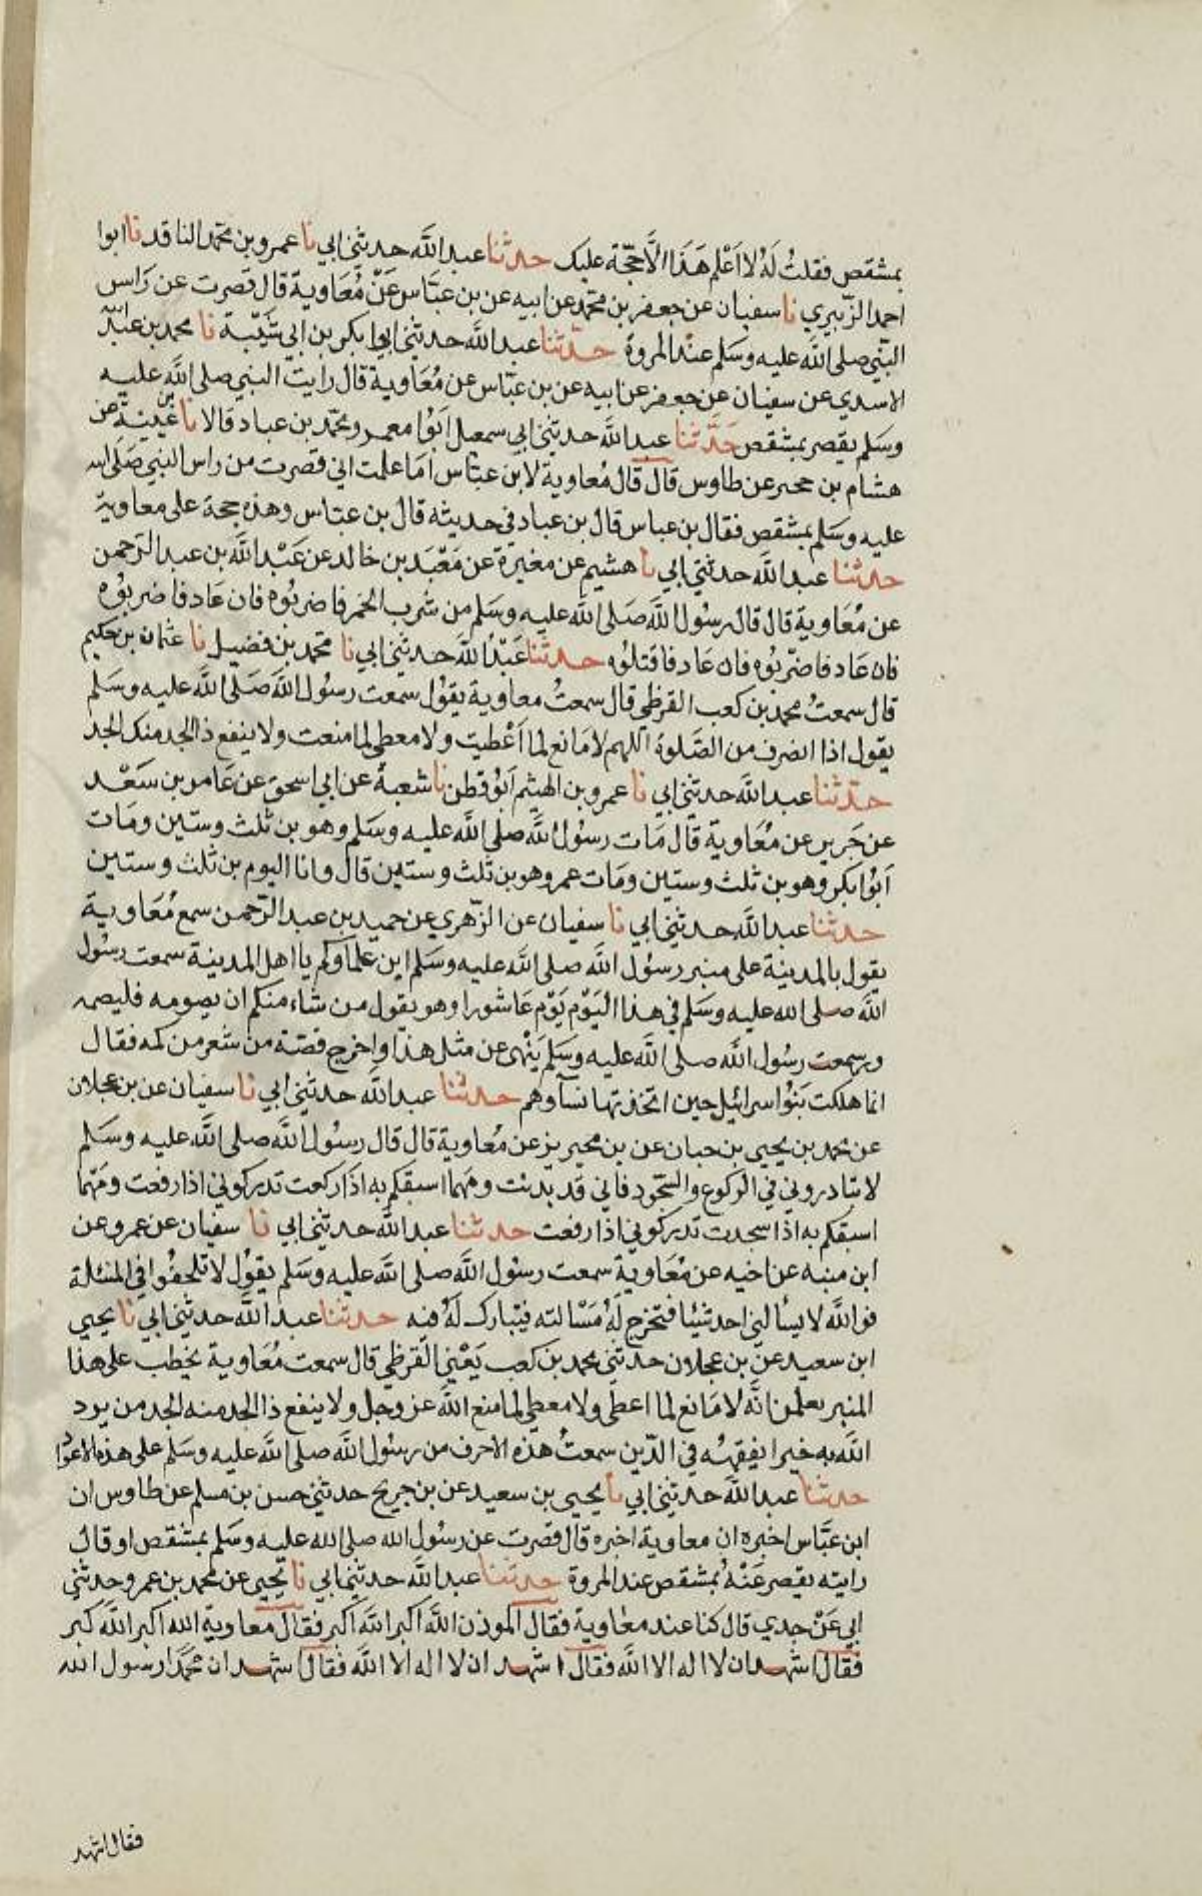 بمشقص فقلت له لا اعلم هذا الا حجة عليك حدثنا عبد الله حدثني ابي نا عمرو بن محمد الناقد نا ابوا
احمد الزبيري نا سفيان عن جعفر بن محمد عن ابيه عن بن عباس عن معاوية قال قصرت عن راس
النبي صلى الله عليه وسلم عند المروة حدثنا عبد الله حدثني ابوا بكر بن ابي شيبة نا محمد بن عبد الله
الاسدي عن سفيان عن جعفر عن ابيه عن بن عباس عن معاوية قال رايت النبي صلى الله عليه
وسلم يقصر بمشقص حدثنا عبد الله حدثني ابي سمعيل ابوا معمر ومحمد بن عباد قالا نا بن عيينة عن
هشام بن حجير عن طاوس قال قال معاوية لابن عباس اما علمت اني قصرت من راس النبي صلى الله
عليه وسلم بمشقص فقال بن عباس قال بن عباد في حديثه قال بن عباس وهذه حجة على معاوية
حدثنا عبد الله حدثني ابي نا هشيم عن مغيرة عن معبد بن خالد عن عبد الله بن عبد الرحمن
عن معاوية قال قال رسول الله صلى الله عليه وسلم من شرب الخمر فاضربوه فان عاد فاضربوه
فان عاد فاضربوه فان عاد فاقتلوه حدثنا عبد الله حدثني ابي نا محمد بن فضيل نا عثمان بن حكيم
قال سمعت محمد بن كعب القرظي قال سمعت معاوية يقول سمعت رسول الله صلى الله عليه وسلم
يقول اذا انصرف من الصلوة اللهم لا مانع لما اعطيت ولا معطي لما منعت ولا ينفع ذا الجد منك الجد
حدثنا عبد الله حدثني ابي نا عمرو بن الهيثم ابو قطن نا شعبة عن ابي اسحق عن عامر بن سعد
عن جرير عن معاوية قال مات رسول الله صلى الله عليه وسلم وهو بن ثلث وستين ومات
ابوا بكر وهو بن ثلث وستين ومات عمر وهو بن ثلث وستين قال وانا اليوم بن ثلث وستين
حدثنا عبد الله حدثني ابي نا سفيان عن الزهري عن حميد بن عبد الرحمن سمع معاوية
يقول بالمدينة على منبر رسول الله صلى الله عليه وسلم اين علماوكم يا اهل المدينة سمعت رسول
الله صلى الله عليه وسلم في هذا اليوم يوم عاشورا وهو يقول من شاء منكم ان يصومه فليصمه
وسمعت رسول الله صلى الله عليه وسلم ينهى عن مثل هذا واخرج قصة من شعر من كمه فقال
انما هلكت بنوا اسرائيل حين اتخذتها نساوهم حدثنا عبد الله حدثني ابي نا سفيان عن بن عجلان
عن محمد بن يحيى بن حبان عن بن محيريز عن معاوية قال قال رسول الله صلى الله عليه وسلم
لا تبادروني في الركوع والسجود فاني قد بدنت ومهما اسبقكم به اذا ركعت تدركوني اذا رفعت ومهما
اسبقكم به اذا سجدت تدركوني اذا رفعت حدثنا عبد الله حدثني ابي نا سفيان عن عمرو عن
ابن منبه عن اخيه عن معاوية سمعت رسول الله صلى الله عليه وسلم يقول لا تلحفوا في المسئلة
فوالله لا يسألني احد شيئا فتخرج له مسالته فيبارك له فيه حدثنا عبد الله حدثني ابي نا يحيى
ابن سعيد عن بن عجلان حدثني محمد بن كعب يعني القرظي قال سمعت معاوية يخطب على هذا
المنبر يعلمن انه لا مانع لما اعطى ولا معطي لما منع الله عز وجل ولا ينفع ذا الجد منه الجد من يرد
الله به خيرا يفقهه في الدين سمعت هذه الاحرف من رسول الله صلى الله عليه وسلم على هذه الاعواد
حدثنا عبد الله حدثني ابي نا يحيى بن سعيد عن بن جريج حدثني حسن بن مسلم عن طاوس ان
ابن عباس اخبره ان معاوية اخبره قال قصرت عن رسول الله صلى الله عليه وسلم بمشقص او قال
رايته يقصر عنه بمشقص عند المروة حدثنا عبد الله حدثني ابي نا يحيى عن محمد بن عمرو حدثني
ابي عن جدي قال كنا عند معاوية فقال الموذن الله اكبر الله اكبر فقال معاوية الله اكبر الله اكبر
فقال اشهد ان لا اله الا الله فقال اشهد ان لا اله الا الله فقال اشهد ان محمدا رسول الله
فقال اشهد